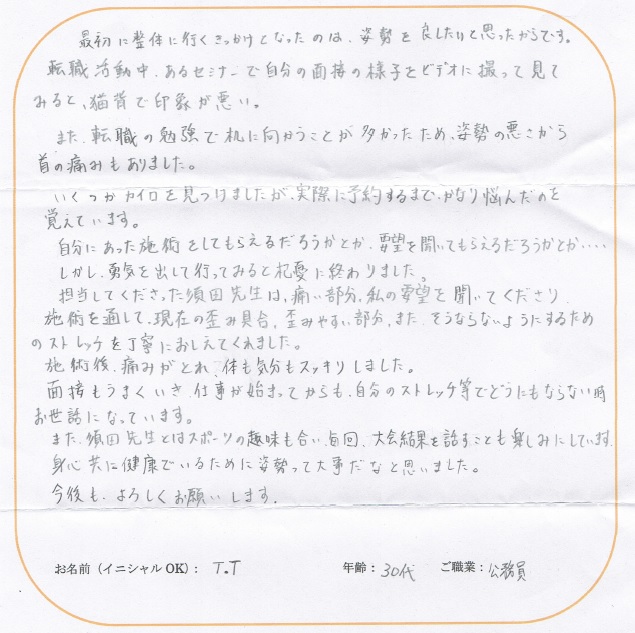 最初に整体に行くきっかけとなったのは、姿勢を良したいと思ったからです。
転職活動中、あるセミナーで自分の面接の様子をビデオに撮って見て
みると、猫背で印象が悪い。
また、転職の勉強で机に向かうことが多かったため、姿勢の悪さから
首の痛みもありました。
いくつかカイロを見つけましたが、実際に予約するまで、かなり悩んだのを
覚えています。
自分にあった施術をしてもらえるだろうかとか、要望を聞いてもらえるだろうかとか・・・・
しかし、勇気を出して行ってみると杞憂に終わりました。
担当してくださった須田先生は、痛い部分、私の要望を聞いてくださり、
施術を通して、現在の歪み具合、歪みやすい部分、また、そうならないようにするため
のストレッチを丁寧におしえてくれました。
施術後、痛みがとれ、体も気分もスッキリしました。
面接もうまくいき、仕事が始まってからも、自分のストレッチ等でどうにもならない時
お世話になっています。
また、須田先生とはスポーツの趣味も合い、毎回、大会結果を話すことも楽しみにしています。
身心共に健康でいるために姿勢って大事だなと思いました。
今後も、よろしくお願いします。
お名前（イニシャルOK）： T.T 年齢： 30代 ご職業： 公務員